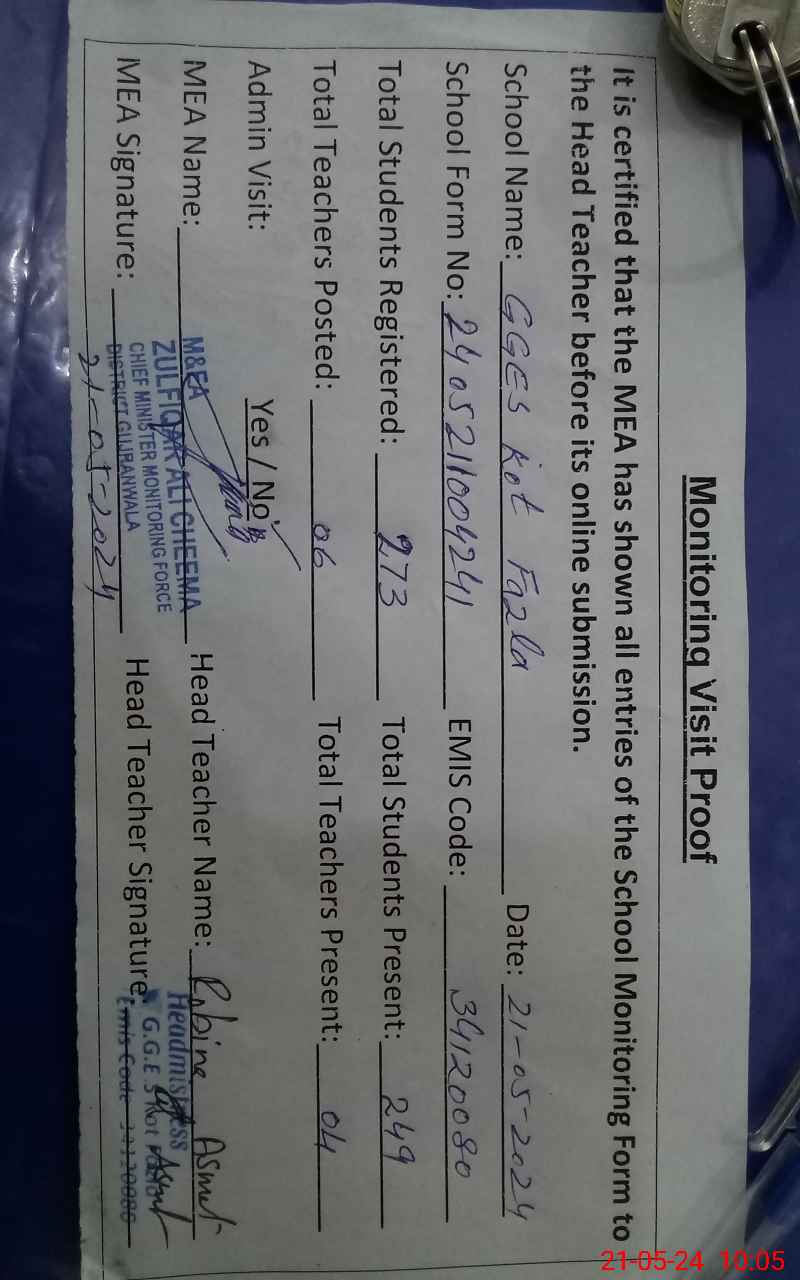 Monitoring Visit Proof
It is certified that the MEA has shown all entries of the School Monitoring Form to
the Head Teacher before its online submission.
School Name: GGES Kot Fazla Date: 21-05-2024
School Form No: 2405211004241 EMIS Code: 34120080
Total Students Registered: 273 Total Students Present: 249
Total Teachers Posted: 06 Total Teachers Present: 04
Admin Visit: Yes / No
MEA Name: Head Teacher Name: Robina Asmat
M&EA
ZULFIQAR ALI CHEEMA
CHIEF MINISTER MONITORING FORCE
DISTRICT GUJRANWALA
MEA Signature: Head Teacher Signature:
21-05-2024
Headmistress
G.G.E.S Kot
Emis Code 34120080
21-05-24 10:05